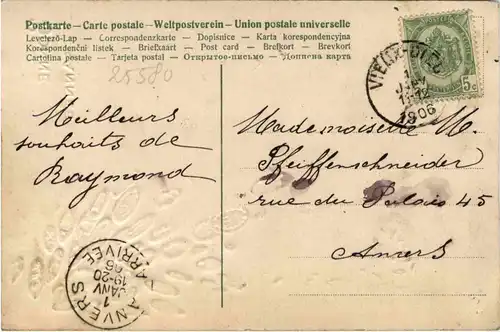 Postkarte – Carte postale – Weltpostverein – Union postale universelle
Levelező-Lap — Correspondenzkarte — Dopisnice — Karta korespondencyjna
Korespondenční lístek — Briefkaart — Post card — Brefkort — Brevkort
Cartolina postale — Tarjeta postal — Открытое письмо — Дописна карта
25580
Meilleurs
souhaits de
Raymond
Mademoiselle M.
Pfeiffenschneider
rue du Palais 45
Anvers
5c
1
JANV
1906
ANVERS
1
JANV
19-20
06
ARRIVÉE